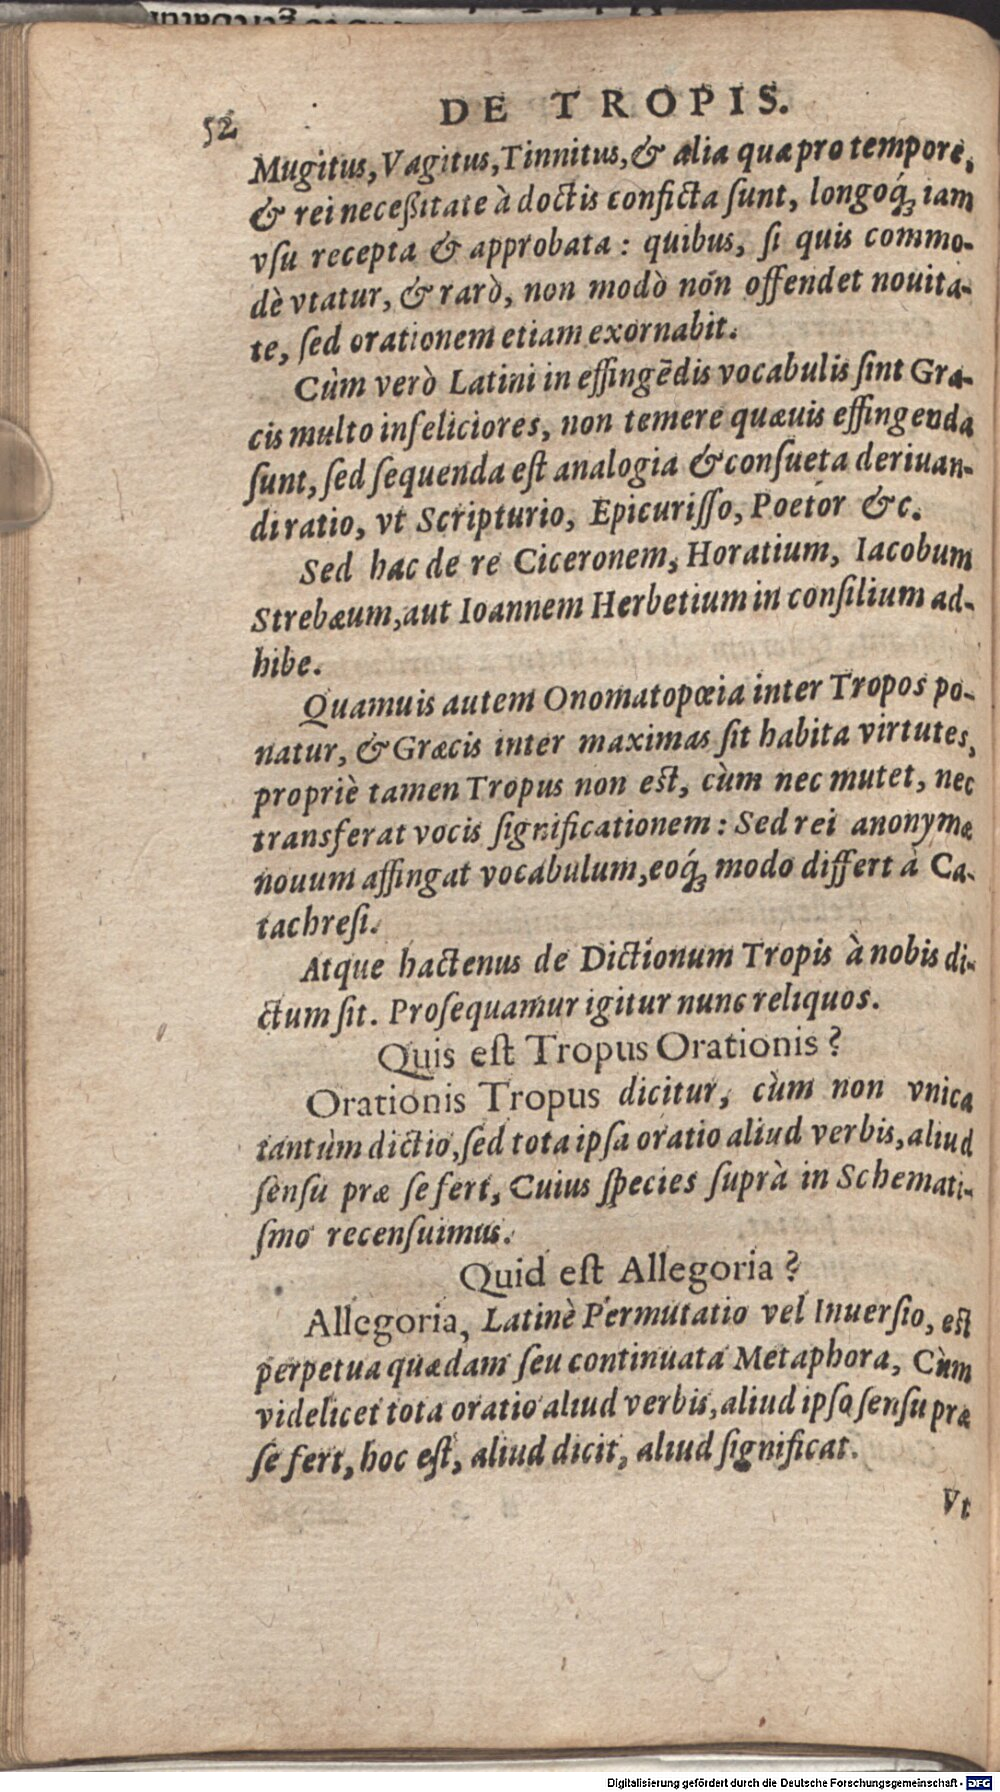 52
DE TROPIS.
Mugitus, Vagitus, Tinnitus, & alia quæ pro tempore,
& rei neceßitate à doctis conficta ſunt, longoq́ꝫ iam
vſu recepta & approbata : quibus, ſi quis commo-
dè vtatur, & rarò, non modò non offendet nouita-
te, ſed orationem etiam exornabit.
Cùm verò Latini in effingēdis vocabulis ſint Græ-
cis multo infeliciores, non temere quæuis effingenda
ſunt, ſed ſequenda eſt analogia & conſueta deriuan-
di ratio, vt Scripturio, Epicuriſſo, Poetor &c.
Sed hac de re Ciceronem, Horatium, Iacobum
Strebæum, aut Ioannem Herbetium in conſilium ad-
hibe.
Quamuis autem Onomatopœia inter Tropos po-
natur, & Græcis inter maximas ſit habita virtutes,
propriè tamen Tropus non eſt, cùm nec mutet, nec
transferat vocis ſignificationem : Sed rei anonymæ
nouum affingat vocabulum, eoq́ꝫ modo differt à Ca-
tachreſi.
Atque hactenus de Dictionum Tropis à nobis di-
ctum ſit. Proſequamur igitur nunc reliquos.
Quis eſt Tropus Orationis ?
Orationis Tropus dicitur, cùm non vnica
tantùm dictio, ſed tota ipſa oratio aliud verbis, aliud
ſenſu præ ſe fert, Cuius ſpecies ſuprà in Schemati-
ſmo recenſuimus.
Quid eſt Allegoria ?
Allegoria, Latinè Permutatio vel Inuerſio, eſt
perpetua quædam ſeu continuata Metaphora, Cùm
videlicet tota oratio aliud verbis, aliud ipſo ſenſu præ
ſe fert, hoc eſt, aliud dicit, aliud ſignificat.
Vt
Digitalisierung gefördert durch die Deutsche Forschungsgemeinschaft - DFG